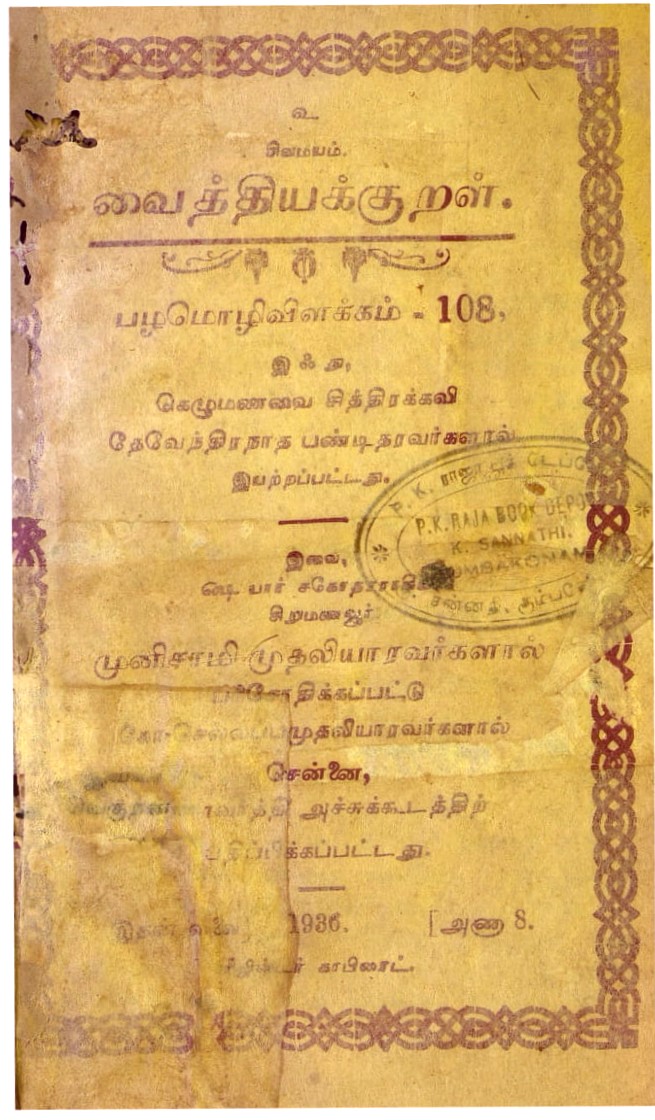 உ
சிவமயம்.
வைத்தியக்குறள்.
பழமொழிவிளக்கம் - 108,
இஃது,
கெழுமணவை சித்திரக்கவி
தேவேந்திரநாத பண்டிதரவர்களால்
இயற்றப்பட்டது.
இவை,
சிறுமணலூர்
முனிசாமி முதலியாரவர்களால்
முதலியாரவர்களால்
சென்னை,
அச்சுக்கூடத்திற்
பதிப்பிக்கப்பட்டது.
1936. [அணா 8.
காபிரைட்.
P. K. ராஜா புக் டெப்போ
P.K. RAJA BOOK DEPO
K. SANNATHI.
KUMBAKONAM
சன்னதி,